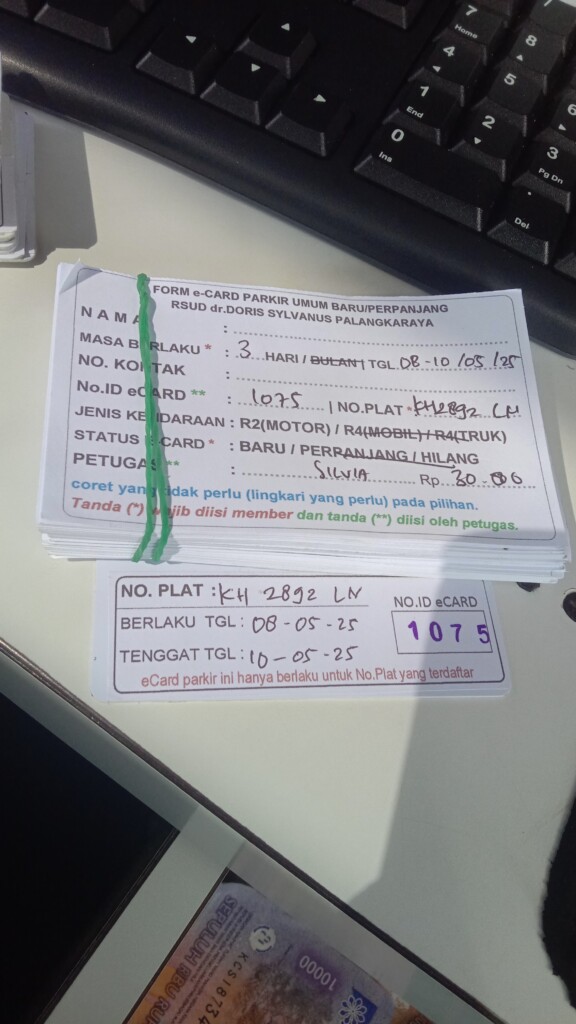 7
Home
8
4
5
6
1
End
2
3
Pg Dn
0
Ins
.
Del
FORM e-CARD PARKIR UMUM BARU/PERPANJANG
RSUD dr.DORIS SYLVANUS PALANGKARAYA
NAMA :
MASA BERLAKU * : 3 HARI / BULAN | TGL. 08-10 /05 /25
NO. KONTAK :
No.ID eCARD ** : 1075 | NO.PLAT * KH2892 LN
JENIS KENDARAAN : R2(MOTOR) / R4(MOBIL) / R4(TRUK)
STATUS eCARD * : BARU / PERPANJANG / HILANG
PETUGAS ** : SILVIA Rp. 30.000
coret yang tidak perlu (lingkari yang perlu) pada pilihan.
Tanda (*) wajib diisi member dan tanda (**) diisi oleh petugas.
NO. PLAT : KH 2892 LN
BERLAKU TGL : 08-05-25
TENGGAT TGL : 10-05-25
NO.ID eCARD
1075
eCard parkir ini hanya berlaku untuk No.Plat yang terdaftar
SEPULUH RIBU RU
KCS18734
10000